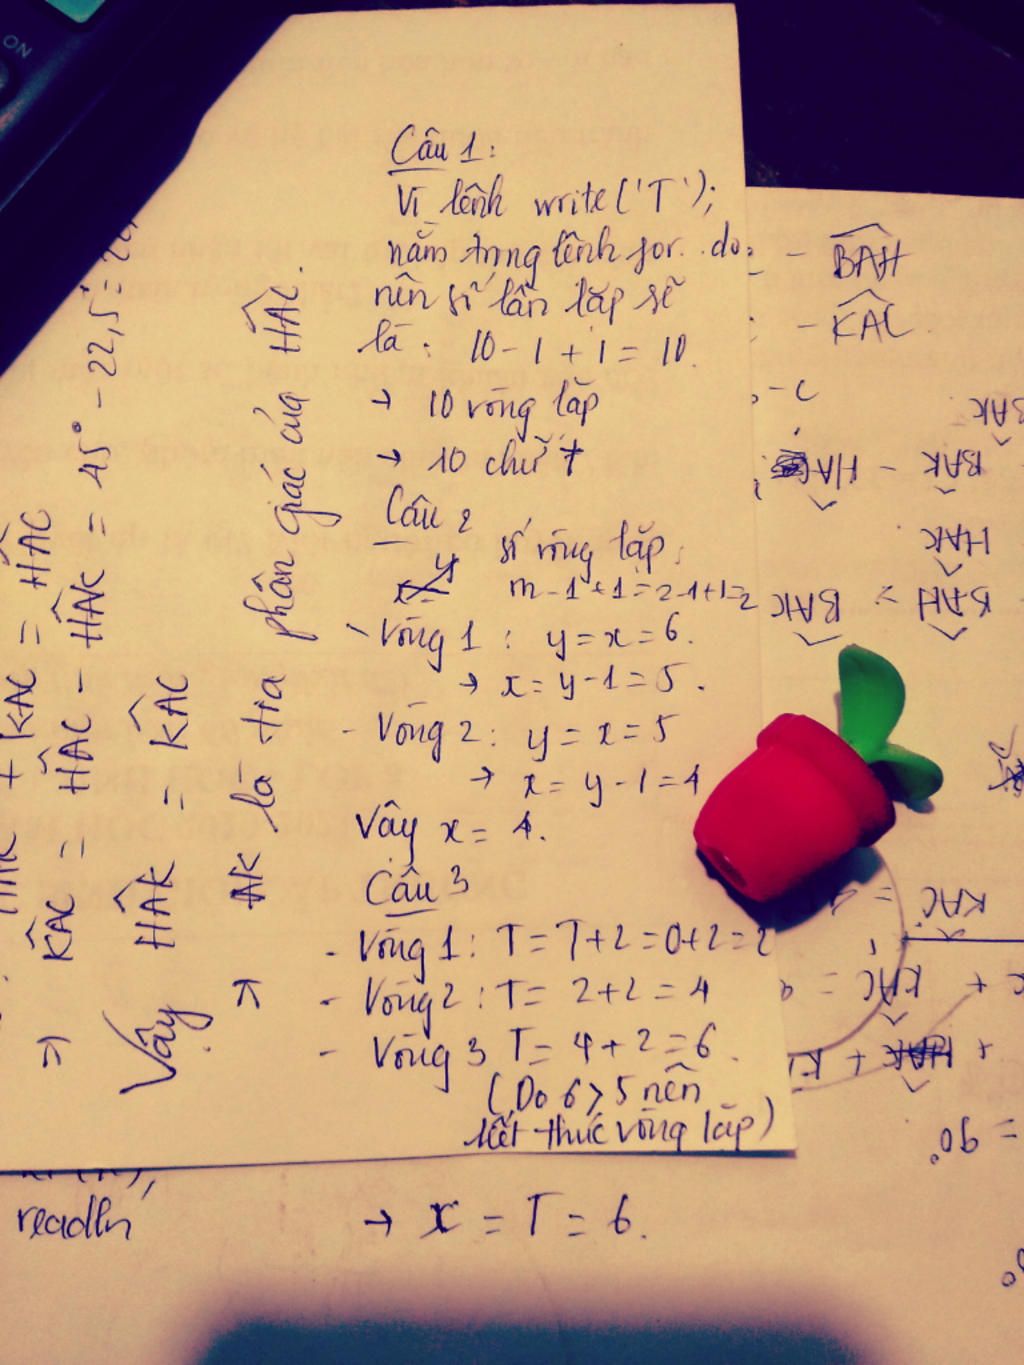 Câu 1:
Vì lệnh write('T');
nằm trong lệnh for..do
nên số lần lặp sẽ
là: 10 - 1 + 1 = 10.
→ 10 vòng lặp
→ 10 chữ T
Câu 2
số vòng lặp:
m-1+1=2-1+1=2
- Vòng 1: y = x = 6.
→ x = y - 1 = 5.
- Vòng 2: y = x = 5
→ x = y - 1 = 4
Vậy x = 4.
Câu 3
- Vòng 1: T = T+2 = 0+2 = 2
- Vòng 2: T = 2+2 = 4
- Vòng 3 T = 4+2 = 6.
(Do 6 > 5 nên
kết thúc vòng lặp)
→ x = T = 6.
readln
+ KAC = HAC
⇒ KAC = HAC - HAK = 45° - 22,5 =
Vậy HAK = KAC
→ AK là tia phân giác của HAC.
- BAH
- KAC
BAK
BAK - HAC
HAK
BAH = BAK
KAC =
+ KAC =
= 90°
ON